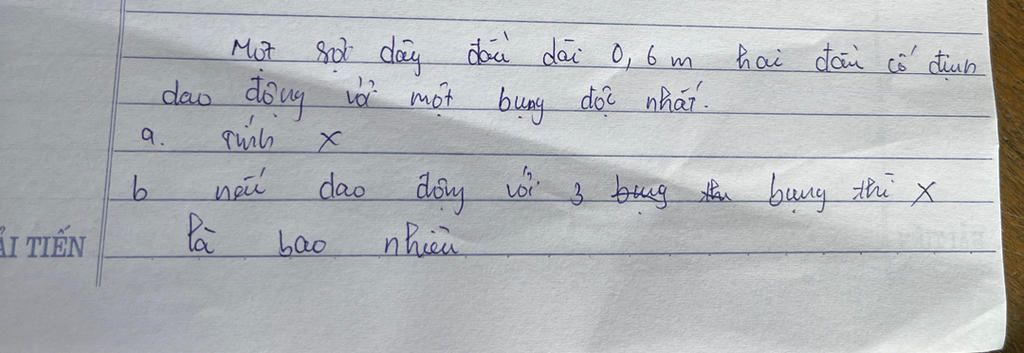 Một sợi dây đàn dài 0,6 m hai đầu cố định
dao động với một bụng độc nhất.
a. tính x
b nếu dao động với 3 bụng thu bụng thì x
ẢI TIẾN là bao nhiêu